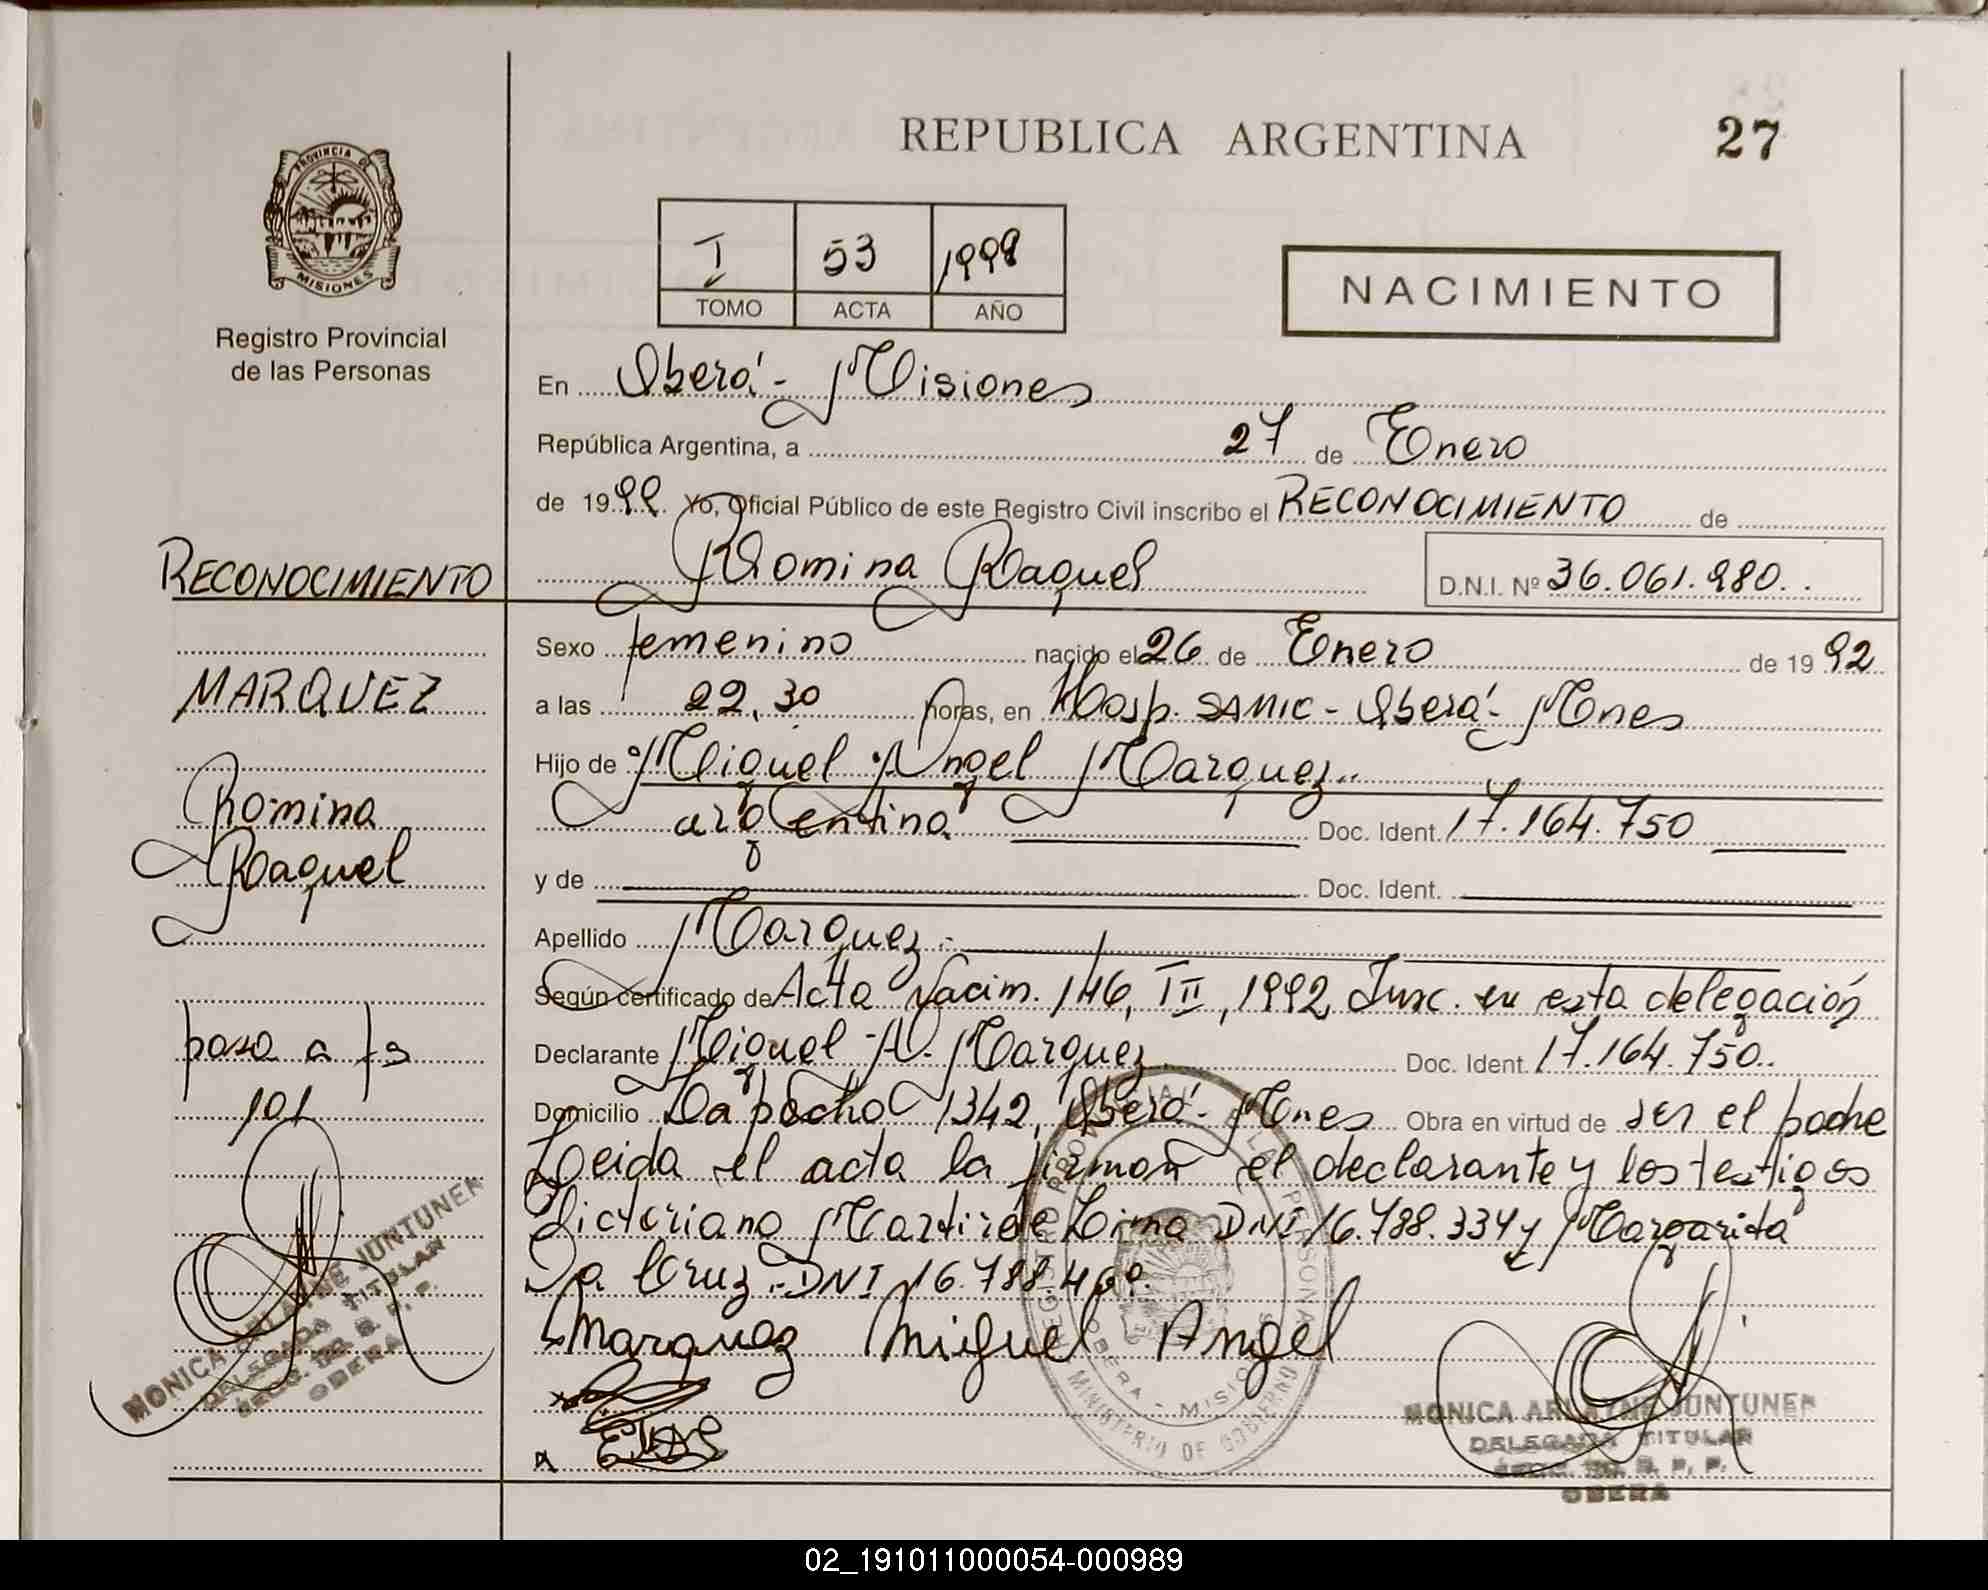 REPUBLICA ARGENTINA
27
PROVINCIA DE
MISIONES
Registro Provincial
de las Personas
I 53 1999
TOMO ACTA AÑO
NACIMIENTO
En Oberá - Misiones
República Argentina, a 27 de Enero
de 1999 Yo, Oficial Público de este Registro Civil inscribo el RECONOCIMIENTO de
Romina Raquel D.N.I. Nº 36.061.980..
Sexo femenino nacido el 26 de Enero de 19 92
a las 22,30 horas, en Hosp. SAMIC - Oberá - Mnes
Hijo de Miguel Angel Marquez..
argentina Doc. Ident. 17.164.750
y de Doc. Ident.
Apellido Marquez.-
Según certificado de Acta Nacim. 146, III, 1992, Insc. en esta delegación
Declarante Miguel A. Marquez Doc. Ident. 17.164.750..
Domicilio Lapacho 1342, Oberá - Mnes Obra en virtud de ser el padre
Leida el acta la firman el declarante y los testigos
Victoriano Martir de Lima DNI 16.788.334 y Margarita
Da Cruz.- DNI 16.788.
Marquez Miguel Angel
RECONOCIMIENTO
MARQUEZ
Romina
Raquel
pasa a fs
101
MONICA ARLAYNE JUNTUNEN
DELEGADA TITULAR
OBERA
REGISTRO PROVINCIAL DE LAS PERSONAS
OBERA - MISIONES
MINISTERIO DE GOBIERNO
MONICA ARLAYNE JUNTUNEN
DELEGADA TITULAR
OBERA
02_191011000054-000989